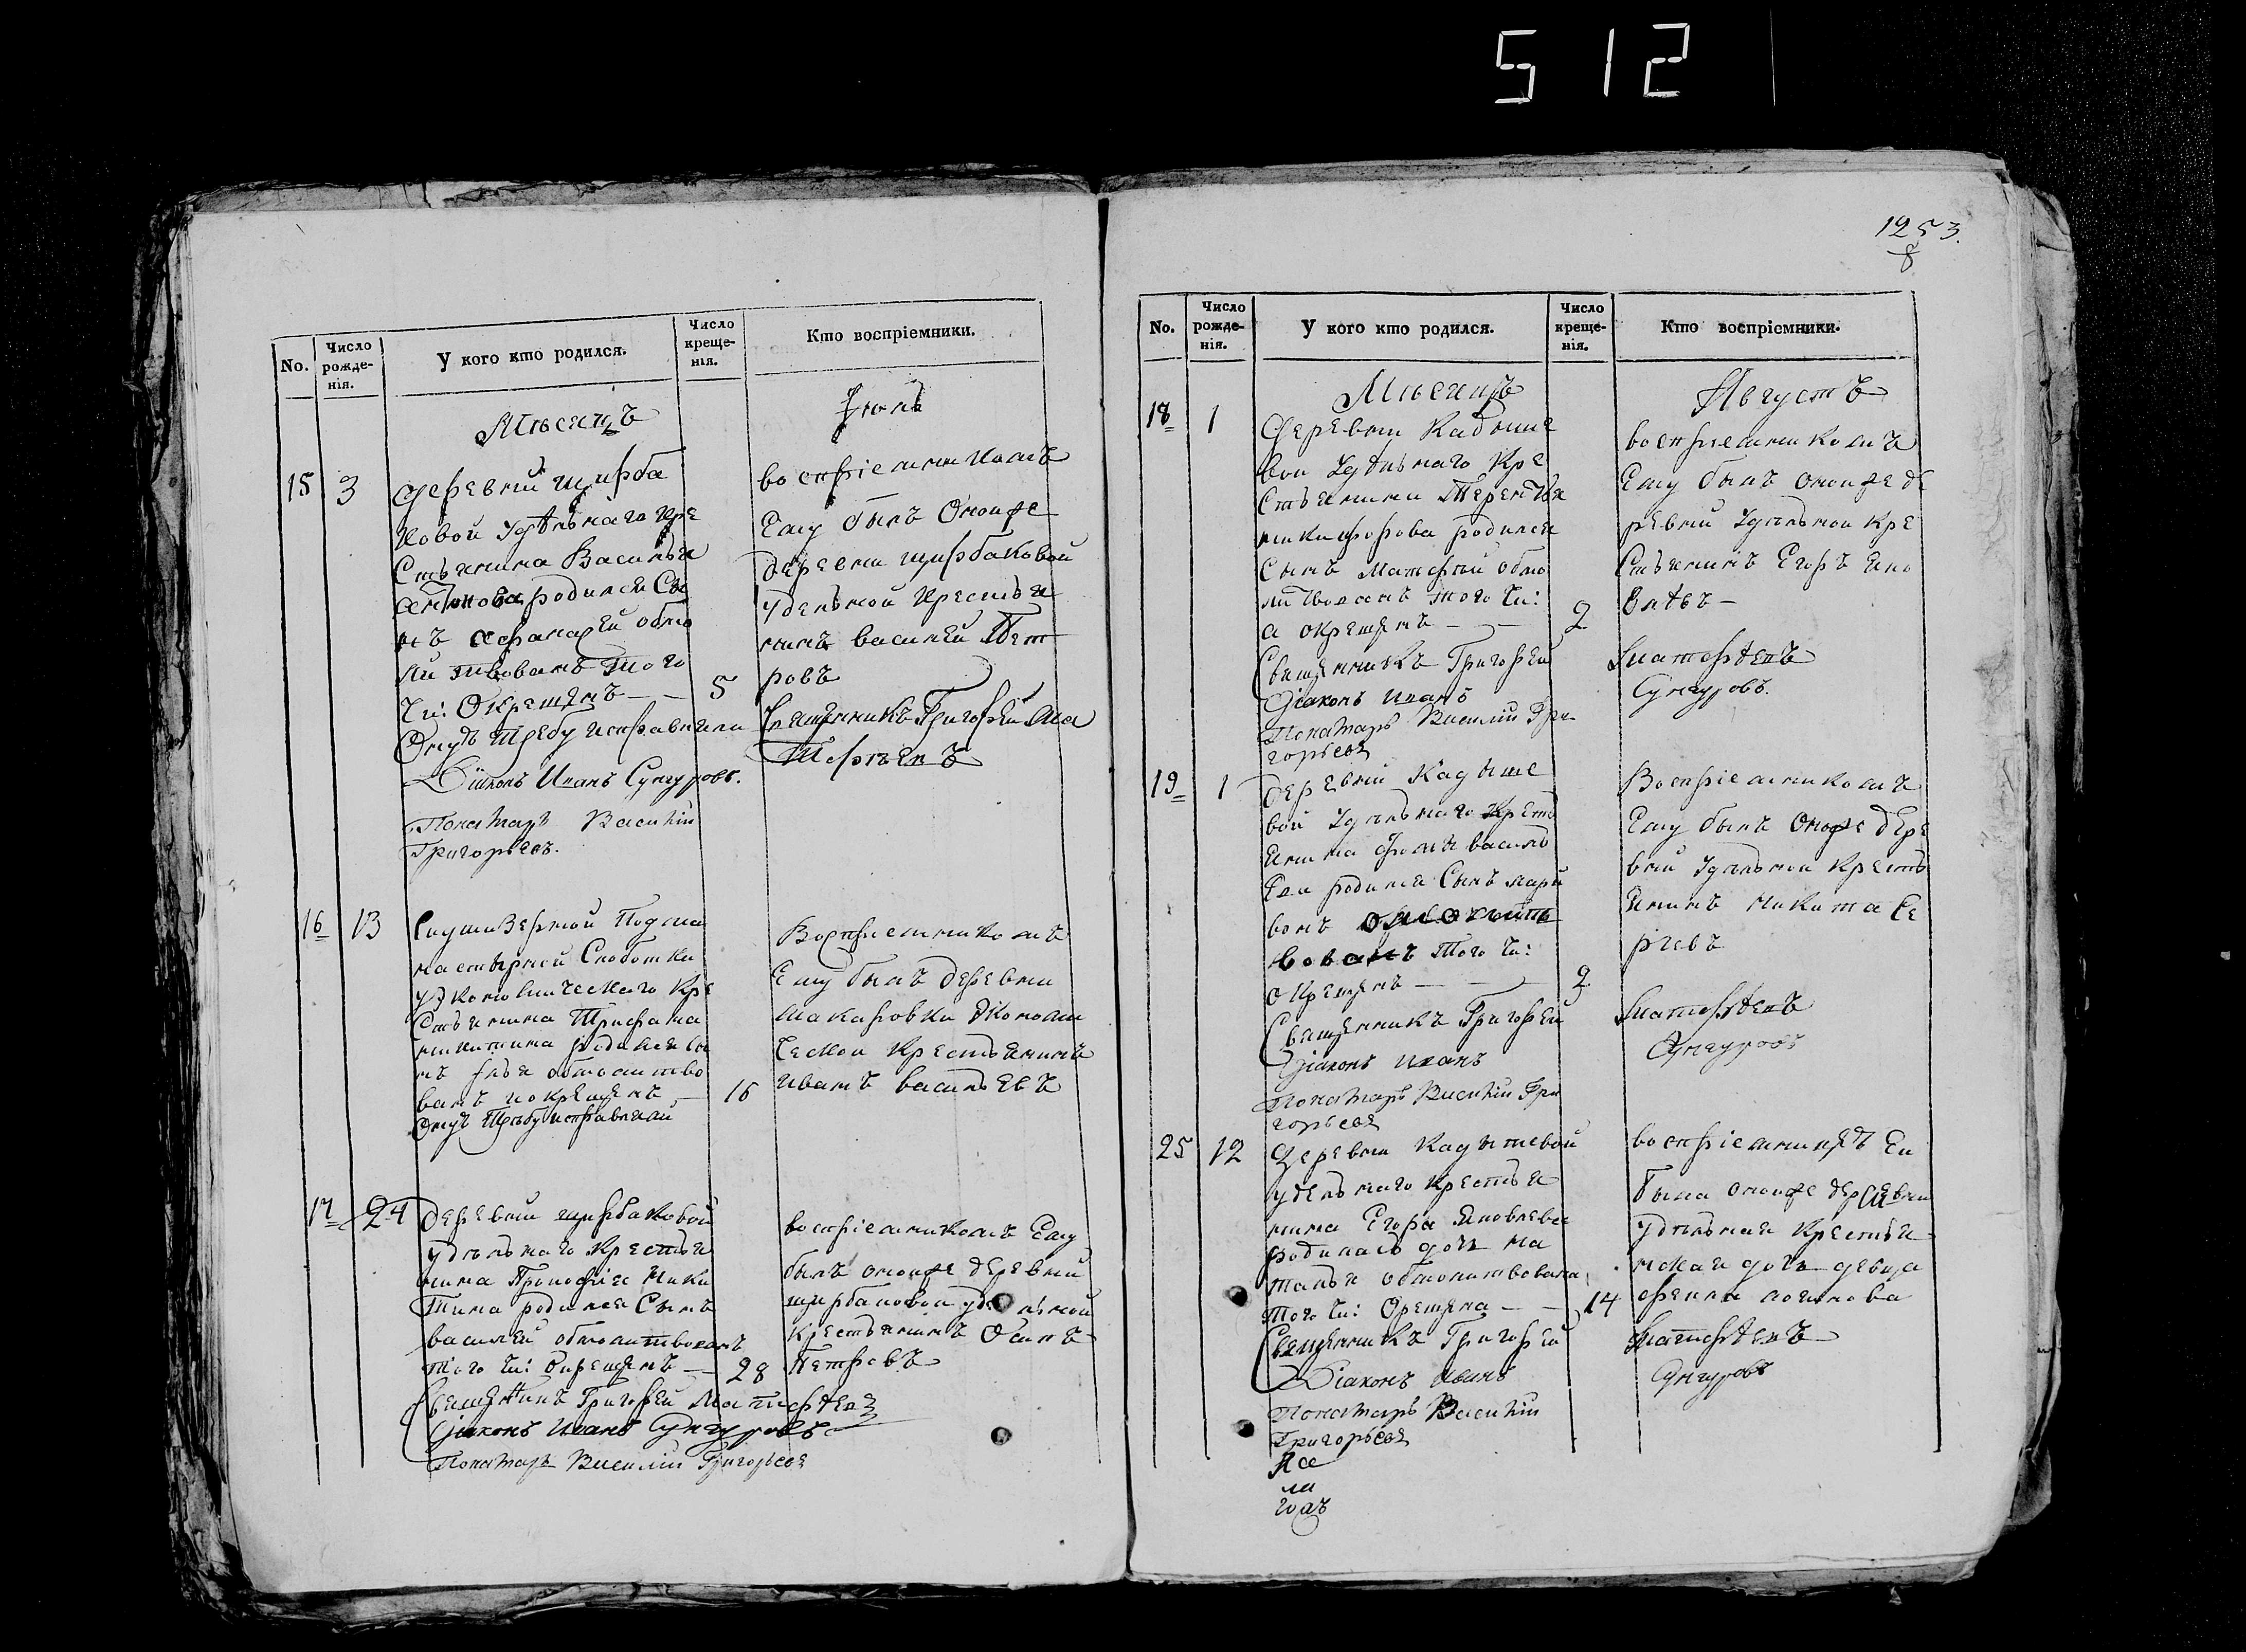 512
1253.
8
No.
Число рожде-нія.
У кого кто родился.
Число креще-нія.
Кто воспріемники.
Мѣсяцъ
Іюль
15
3
деревни щирба
ковой Удѣльнаго кре
стьянина Василья
родился сы
нъ обмо
литвованъ того
чи: Окрещенъ — — 5
Онуъ требу исправляли
Діаконъ Иванъ Сунгуровъ.
Пономарь Василій
Григорьевъ.
воспріемникомъ
Ему былъ оноиже
деревни щирбаковой
удельной крестья
нинъ василей Пет
ровъ
Священникъ Григорей Ма
тфѣевъ
16
13
Подмо
настырной Слоботки
Економическаго кре
стьянина Трифана
никитина родился сы
нъ Илья обмолитво
ванъ иокрещенъ — 16
Онуъ Требу исправляли
Воспріемникомъ
Ему былъ деревни
макаровки Економи
ческой крестьянинъ
иванъ васильевъ
17
24
деревни щирбаковой
удѣльнаго крестья
нина Прокофія Ники
тина родился Сынъ
василей обмолитвованъ
того чи: Окрещенъ — 28
Священникъ Григорей Матфѣевъ
Діаконъ Иванъ Сунгуровъ
Пономарь Василій Григорьевъ
воспріемникомъ Ему
былъ оноиже деревни
щирбаковой удельной
крестьянинъ Осипъ
Петровъ
No.
Число рожде-нія.
У кого кто родился.
Число креще-нія.
Кто воспріемники.
Мѣсяцъ
Августъ
18
1
Деревни Кадыше
вой Удѣльнаго Кре
стьянина Терентья
никифорова родился
Сынъ обмо
литвованъ того чи:
а окрещенъ — — 2
Священникъ Григорей
Діаконъ Иванъ
Пономарь Василій Гри
горьевъ
воспріемникомъ
Ему былъ оноиже де
ревни Удѣльной кре
стьянинъ Егоръ Яко
влѣвъ —
Матфѣевъ
Сунгуровъ.
19
1
деревни Кадыше
вой Удѣльнаго кресть
янина василь
ева родился Сынъ лари
вонъ обмолит
вованъ того чи:
окрещенъ — — 2
Священникъ Григорей
Діаконъ Иванъ
Пономарь Василій Гри
горьевъ
Воспріемникомъ
Ему былъ оноиже дере
вни Удѣльной кресть
янинъ никита Се
ргевъ
Матфѣевъ
Сунгуровъ
25
12
Деревни Кадышевой
удельнаго крестья
нина Егора Яковлева
родилась дочь На
талья обмолитвована
того чи: Окрещена — — 14
Священникъ Григорей
Діаконъ Иванъ
Пономарь Василій
Григорьевъ
воспріемницей Ей
была оноиже деревни
удѣльная крестья
нская дочь девица
логинова
Матфѣевъ
Сунгуровъ